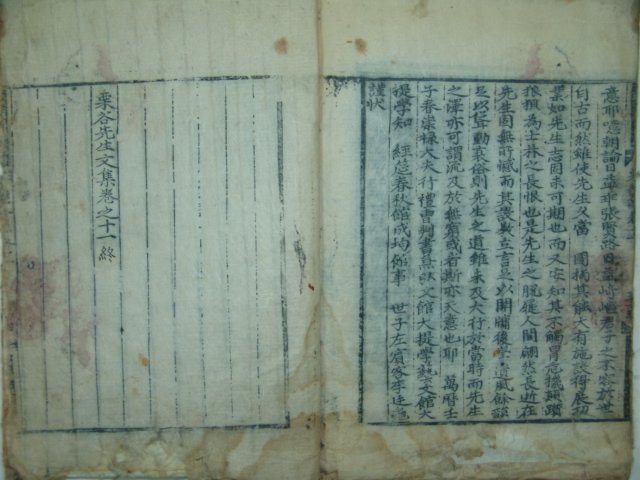 意耶噫朝論日乖耶張實終日益崎嶇君子之不容於世
自古而然雖使先生久當國柄其能大有施設得展初
業如先生志固未可期也而又安知其不觸冒危機顚躓
狼狽爲士林之長恨也是先生之脫屣人間翩然長逝在
先生固無所憾而其設敎立言足以開牖後學遺風餘韻
足以聳動衰俗則先生之道雖未及大行於當時而先生
之澤亦可謂流及於無窮或者斯亦天意也耶 萬曆壬
子春崇祿大夫行禮曹判書兼 館大提學藝文館大
提學知 經筵春秋館成均館事 世子左賓客李廷龜
謹狀
栗谷先生文集卷之十一 終